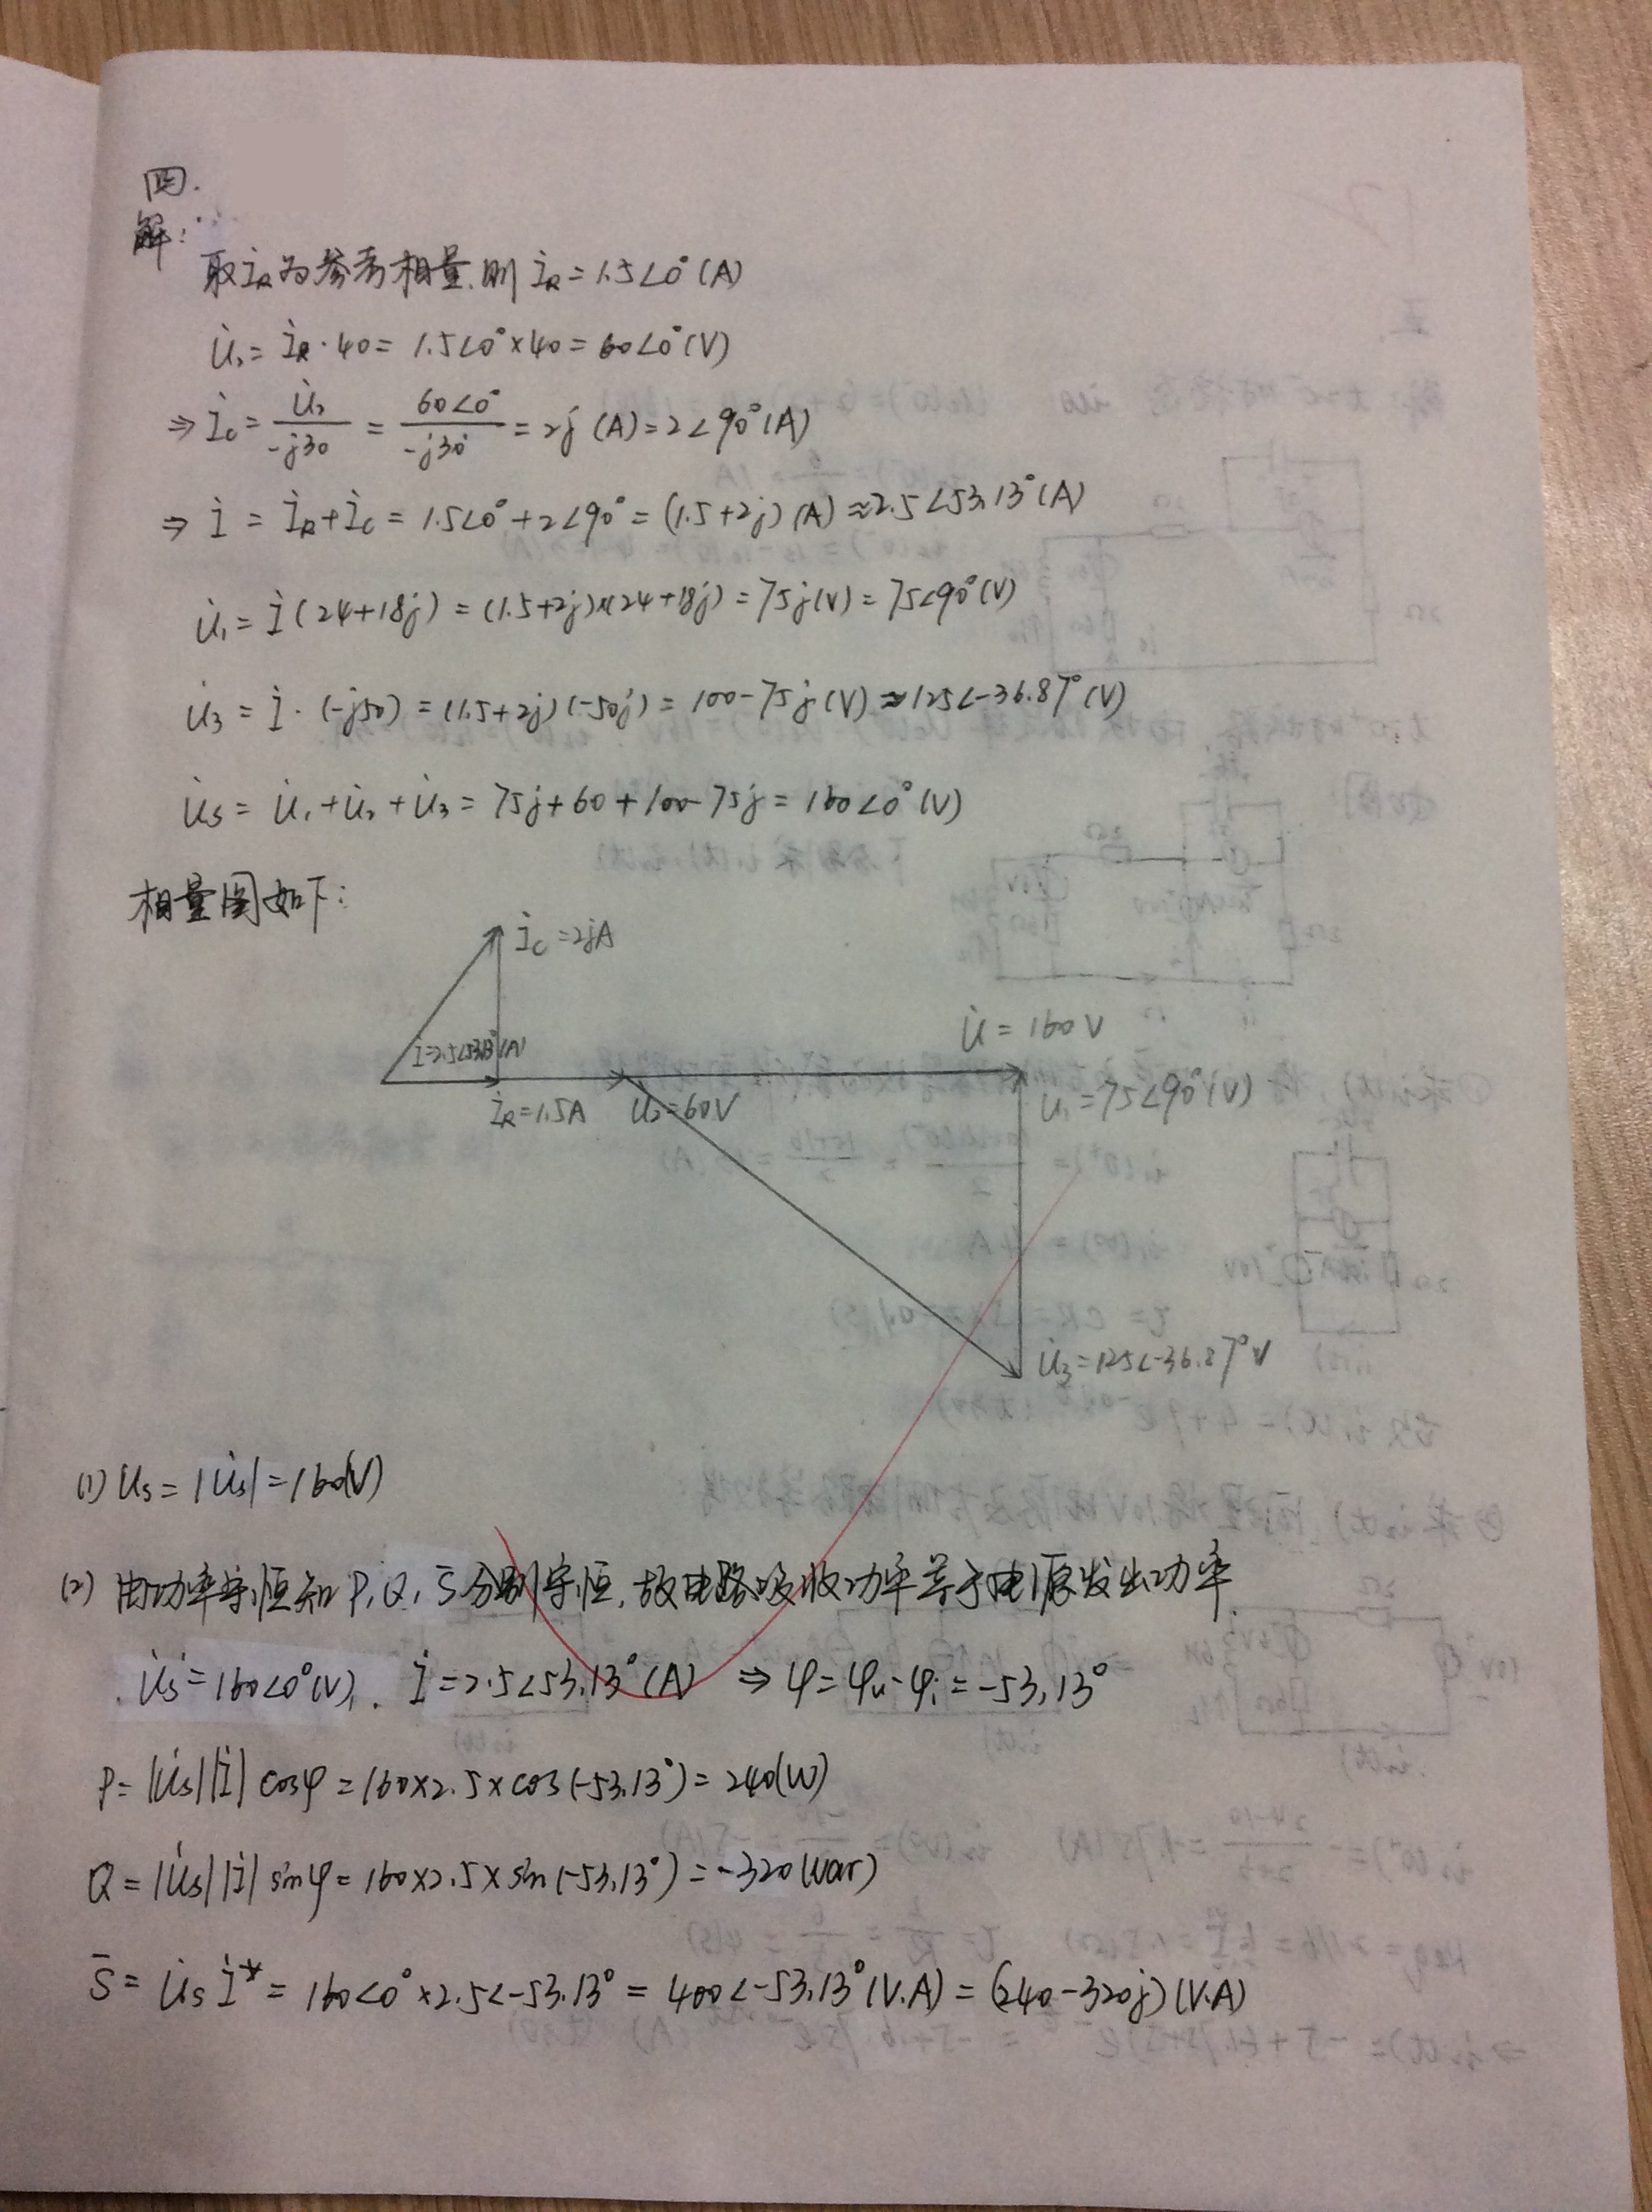 四.
解:
取İR为参考相量,则 İR=1.5∠0°(A)
U̇₂=İR·40=1.5∠0°×40=60∠0°(V)
⇒ İC=U̇₂/-j30=60∠0°/-j30=2j(A)=2∠90°(A)
⇒ İ=İR+İC=1.5∠0°+2∠90°=(1.5+2j)(A)≈2.5∠53.13°(A)
U̇₁=İ(24+18j)=(1.5+2j)×(24+18j)=75j(V)=75∠90°(V)
U̇₃=İ·(-j50)=(1.5+2j)(-50j)=100-75j(V)≈125∠-36.87°(V)
U̇s=U̇₁+U̇₂+U̇₃=75j+60+100-75j=160∠0°(V)
相量图如下:
İC=2jA
U̇=160V
İ=2.5∠53.13°(A)
İR=1.5A
U̇₂=60V
U̇₁=75∠90°(V)
U̇₃=125∠-36.87°V
(1) Us=|U̇s|=160(V)
(2) 由功率守恒知P,Q,S̄分别守恒,故电路吸收功率等于电源发出功率.
U̇s=160∠0°(V), İ=2.5∠53.13°(A) ⇒ φ=φu-φi=-53.13°
P=|U̇s||İ|cosφ=160×2.5×cos(-53.13°)=240(W)
Q=|U̇s||İ|sinφ=160×2.5×sin(-53.13°)=-320(var)
S̄=U̇sİ*=160∠0°×2.5∠-53.13°=400∠-53.13°(V.A)=(240-320j)(V.A)